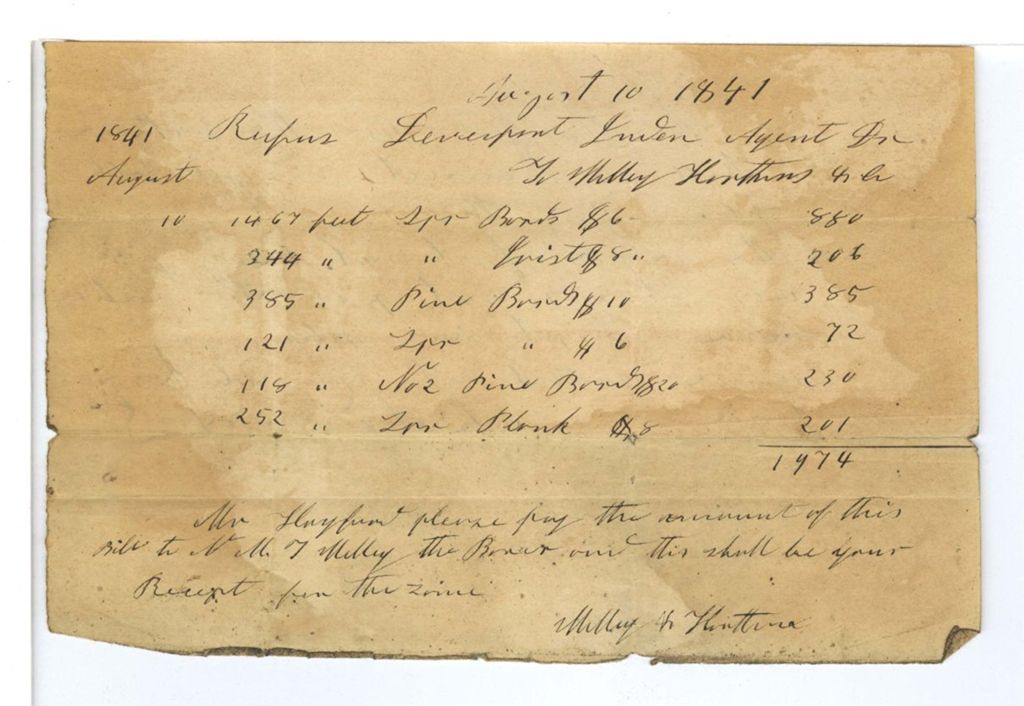 August 10 1841
1841 Rufus Devenport Inden Agent Dr
August To Milley Hawthins & Co
10 1467 feet Spr Bords $6 880
344 " " Joist $8 " 206
385 " Pine Bords $10 385
121 " Spr " $6 72
118 " No 2 Pine Bords $20 230
252 " Spr Plank $8 201
1974
Mr Hayford please pay the amount of this
Bill to N M T Milley the Barer and this shall be your
Receipt for the same
Milley &